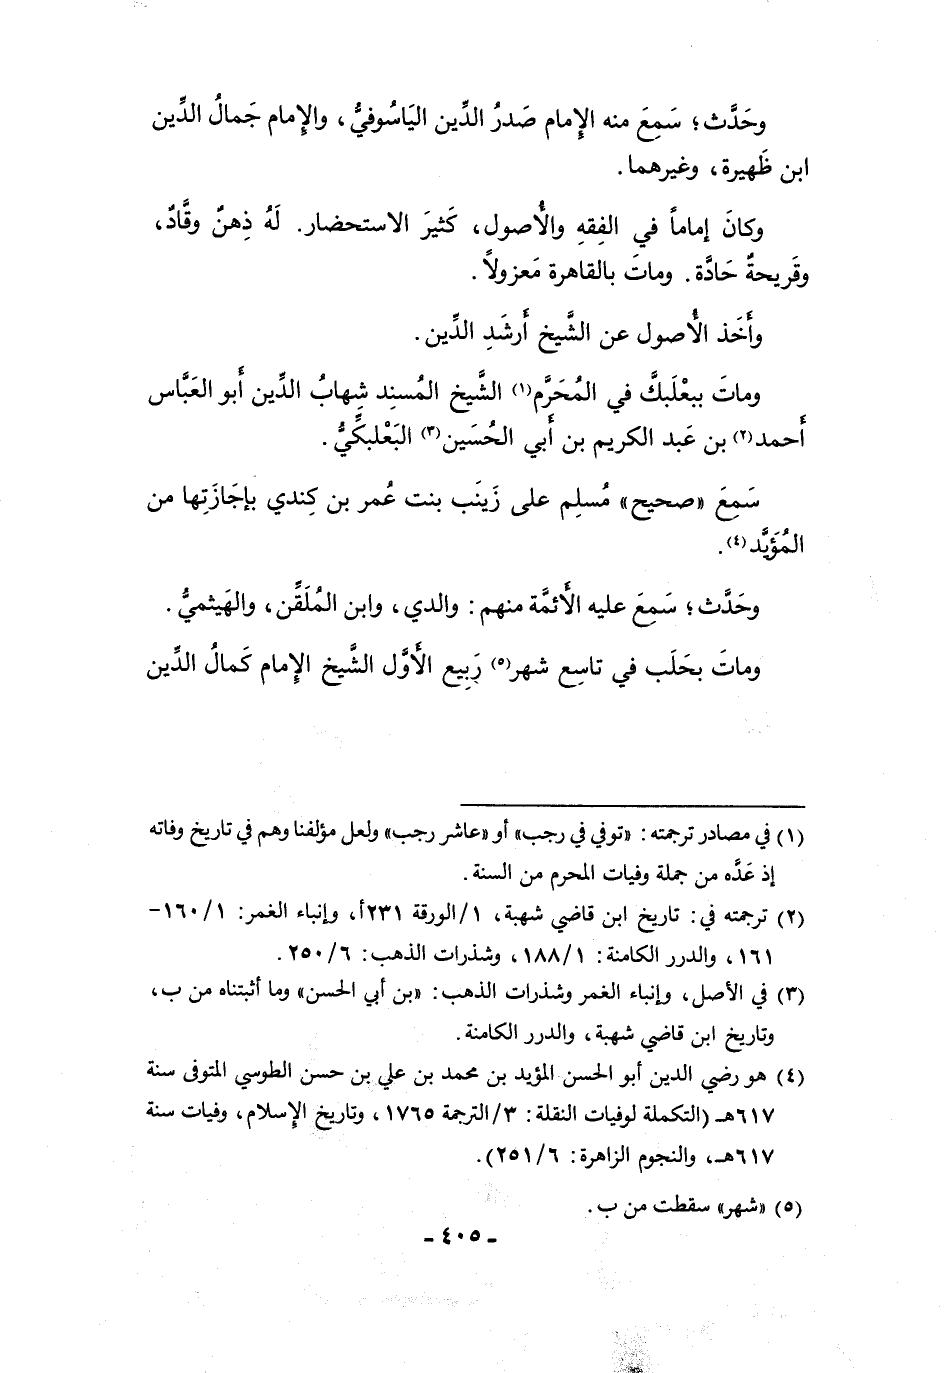 وحَدَّث؛ سَمِعَ منه الإمام صَدرُ الدِّين اليَاسُوفيُّ، والإمام جَمالُ الدِّين
ابن ظَهيرة، وغيرهما.
وكانَ إماماً في الفِقهِ والأُصول، كَثيرَ الاستحضار. لَهُ ذِهنٌ وقَّادٌ،
وقَريحةٌ حَادَّة. وماتَ بالقاهرة مَعزولاً.
وأَخَذ الأُصول عن الشَّيخ أَرشَدِ الدِّين.
وماتَ ببعْلَبكَّ في المُحَرَّم(١) الشَّيخ المُسنِد شِهابُ الدِّين أبو العَبَّاس
أَحمد(٢) بن عَبد الكريم بن أَبي الحُسَين(٣) البَعْلبكِّيُّ.
سَمِعَ «صحيح» مُسلِم على زَينَب بنت عُمر بن كِندي بإجَازَتِها من
المُؤيَّد(٤).
وحَدَّث؛ سَمِعَ عليه الأَئمَّة منهم: والدي، وابن المُلَقِّن، والهَيثميُّ.
وماتَ بحَلَب في تاسِع شهر(٥) رَبِيع الأَوَّل الشَّيخ الإمام كَمالُ الدِّين
(١) في مصادر ترجمته: «توفي في رجب» أو «عاشر رجب» ولعل مؤلفنا وهم في تاريخ وفاته
إذ عَدَّه من جملة وفيات المحرم من السنة.
(٢) ترجمته في: تاريخ ابن قاضي شهبة، ١/الورقة ٢٣١أ، وإنباء الغمر: ١/ ١٦٠-
١٦١، والدرر الكامنة: ١/ ١٨٨، وشذرات الذهب: ٦/ ٢٥٠.
(٣) في الأصل، وإنباء الغمر وشذرات الذهب: «بن أبي الحسن» وما أثبتناه من ب،
وتاريخ ابن قاضي شهبة، والدرر الكامنة.
(٤) هو رضي الدين أبو الحسن المؤيد بن محمد بن علي بن حسن الطوسي المتوفى سنة
٦١٧هـ (التكملة لوفيات النقلة: ٣/الترجمة ١٧٦٥، وتاريخ الإسلام، وفيات سنة
٦١٧هـ، والنجوم الزاهرة: ٦/ ٢٥١).
(٥) «شهر» سقطت من ب.
- ٤٠٥ -